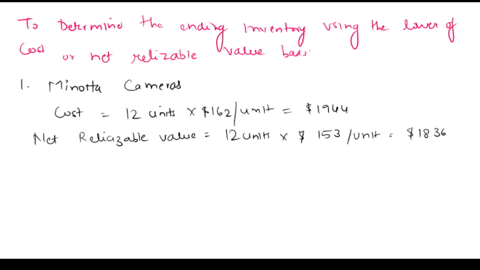 To Determine the ending Inventory using the lower of
Cost or net relizable value basis
1. Minotta Cameras
Cost = 12 units x $162/unit = $1944
Net Reliazable value = 12 units x $ 153/unit = $1836